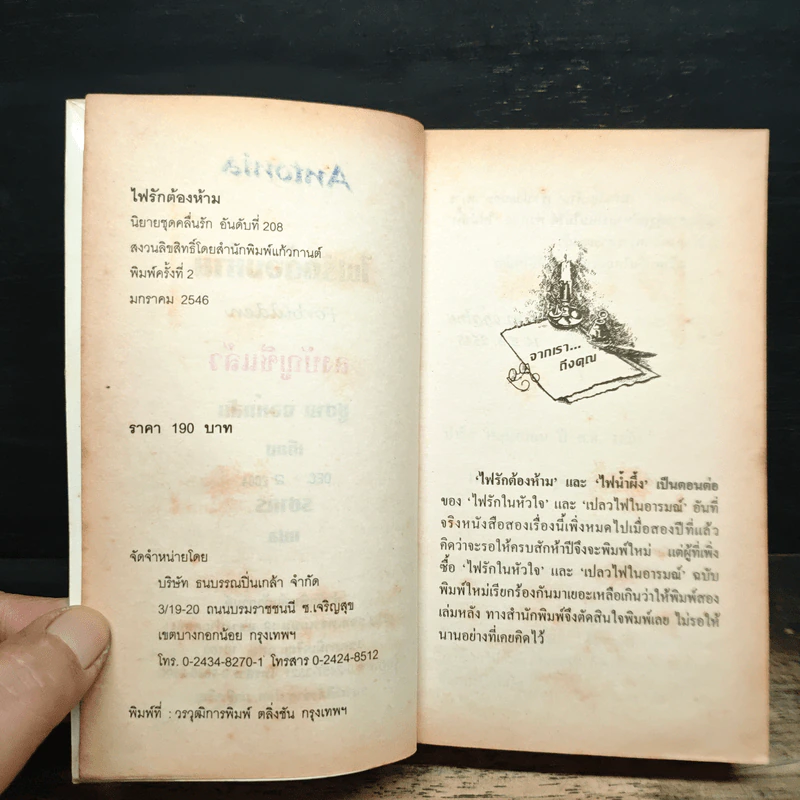 Antonia
ไฟรักต้องห้าม
นิยายชุดคลื่นรัก อันดับที่ 208
สงวนลิขสิทธิ์โดยสำนักพิมพ์แก้วกานต์
พิมพ์ครั้งที่ 2
มกราคม 2546
ราคา 190 บาท
จัดจำหน่ายโดย
บริษัท ธนบรรณปิ่นเกล้า จำกัด
3/19-20 ถนนบรมราชชนนี ซ.เจริญสุข
เขตบางกอกน้อย กรุงเทพฯ
โทร. 0-2434-8270-1 โทรสาร 0-2424-8512
พิมพ์ที่ : วรวุฒิการพิมพ์ ตลิ่งชัน กรุงเทพฯ
จากเรา...
ถึงคุณ
'ไฟรักต้องห้าม' และ 'ไฟน้ำผึ้ง' เป็นตอนต่อ
ของ 'ไฟรักในหัวใจ' และ 'เปลวไฟในอารมณ์' อันที่
จริงหนังสือสองเรื่องนี้เพิ่งหมดไปเมื่อสองปีที่แล้ว
คิดว่าจะรอให้ครบสักห้าปีจึงจะพิมพ์ใหม่ แต่ผู้ที่เพิ่ง
ซื้อ 'ไฟรักในหัวใจ' และ 'เปลวไฟในอารมณ์' ฉบับ
พิมพ์ใหม่เรียกร้องกันมาเยอะเหลือเกินว่าให้พิมพ์สอง
เล่มหลัง ทางสำนักพิมพ์จึงตัดสินใจพิมพ์เลย ไม่รอให้
นานอย่างที่เคยคิดไว้